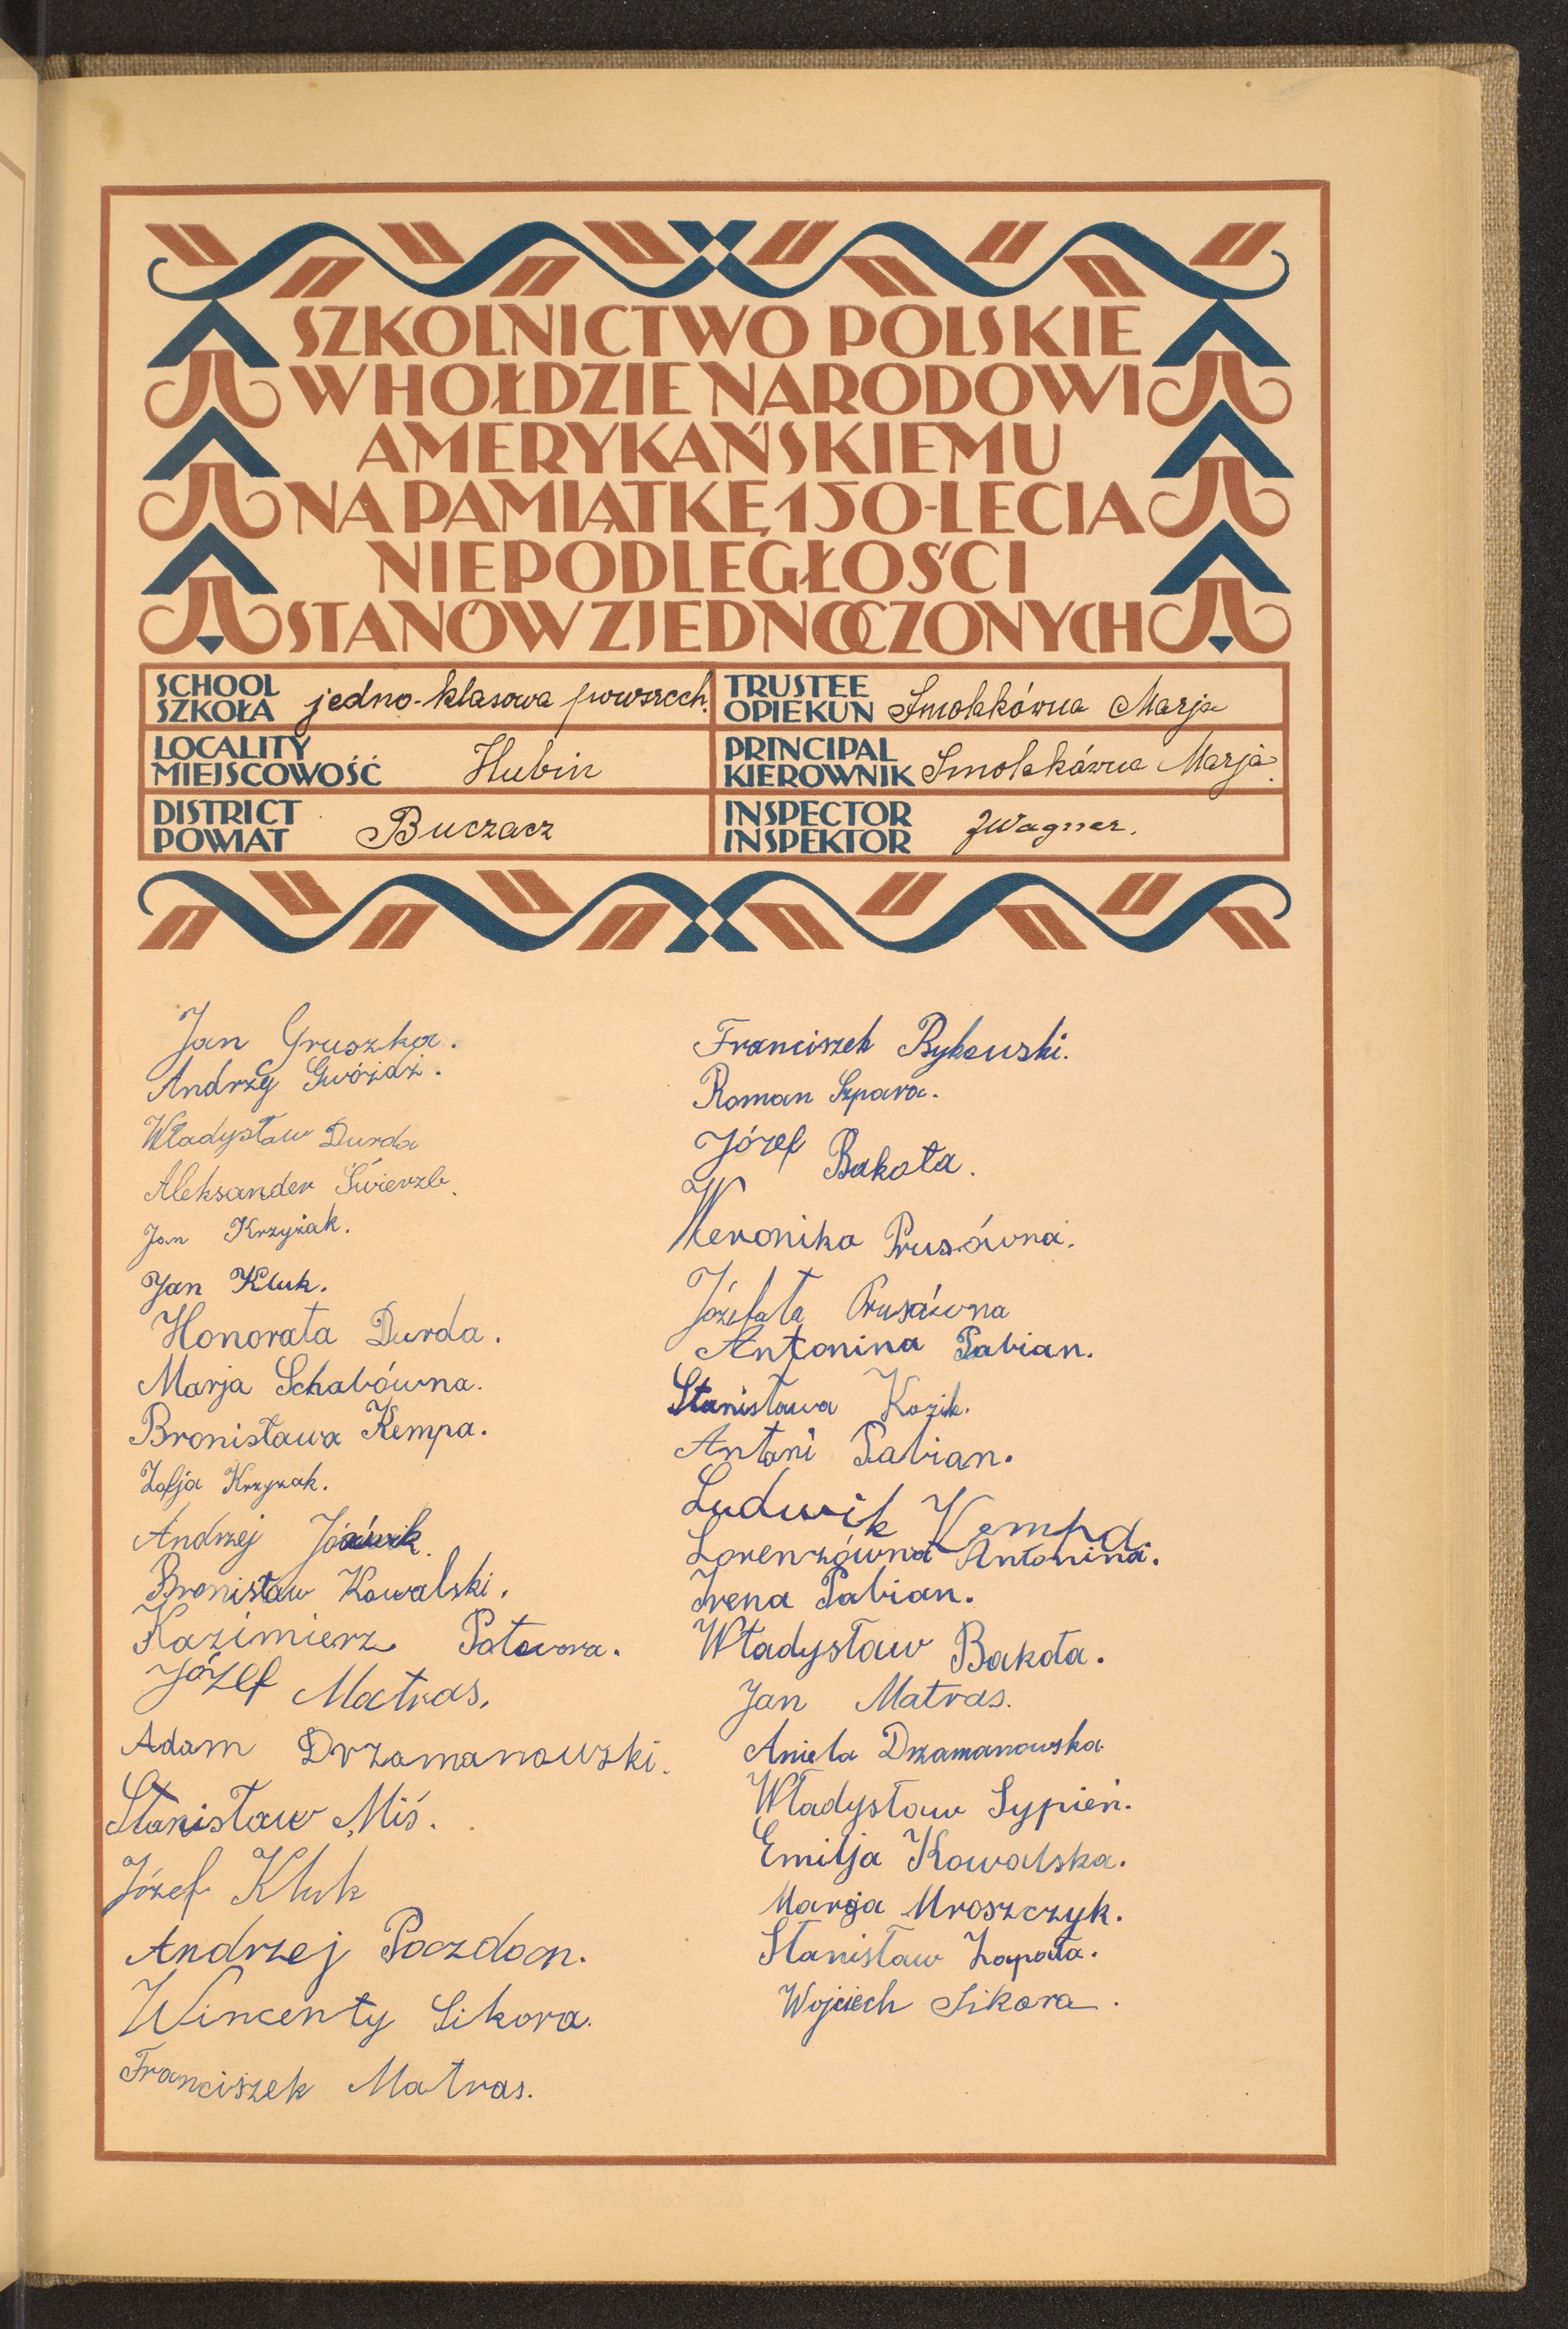 SZKOLNICTWO POLSKIE
W HOŁDZIE NARODOWI
AMERYKAŃSKIEMU
NA PAMIĄTKĘ 150-LECIA
NIEPODLEGŁOŚCI
STANÓW ZJEDNOCZONYCH
SCHOOL
SZKOŁA jedno-klasowa powszech.
TRUSTEE
OPIEKUN Smolkówna Marja
LOCALITY
MIEJSCOWOŚĆ Hubin
PRINCIPAL
KIEROWNIK Smolkówna Marja.
DISTRICT
POWIAT Buczacz
INSPECTOR
INSPEKTOR JWagner.
Jan Gruszka.
Andrzy Gwóźdź.
Władysław Durda
Aleksander Świerzb.
Jan Krzyżak.
Jan Kluk.
Honorata Durda.
Marja Schabówna.
Bronisława Kempa.
Zofja Krzyzak.
Andrzej
Bronisław Kowalski.
Kazimierz Potwora.
Józef Matras.
Adam Drzamanowski.
Stanisław Miś.
Józef Kluk
Andrzej Poczdoan.
Wincenty Sikora.
Franciszek Matras.
Franciszek Bykowski.
Roman Szpara.
Józef Bakota.
Weronika Prusówna.
Józefata Prusówna
Antonina Pabian.
Stanisława Kozik.
Antoni Pabian.
Ludwik Kempa.
Lorenzówna Antonina.
Irena Pabian.
Władysław Bakota.
Jan Matras.
Aniela Drzamanowska
Władysław Sypień.
Emilja Kowalska.
Marja Mroszczyk.
Stanisław Zapała.
Wojciech Sikora.